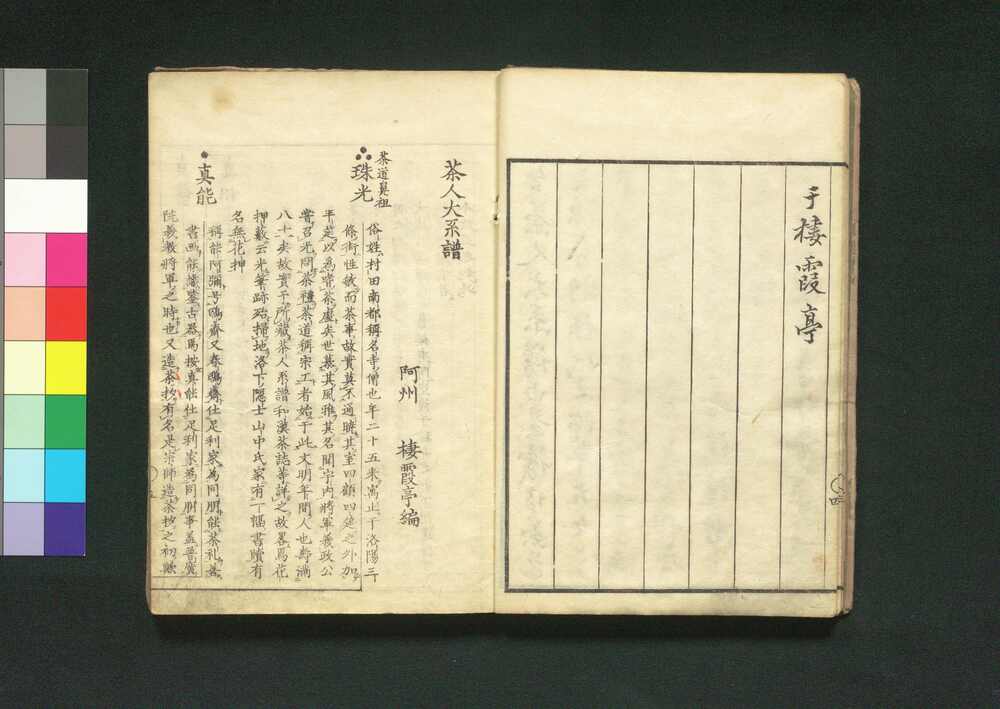 于棲霞亭
茶人大系譜
阿州 棲霞亭編
茶道鼻祖
珠光
俗姓村田南都稱名寺僧也年二十五来寓止于洛陽三
條街性敏而茶事故實莫不通暁其室四顧四筵之外加
半筵以為喫茶處矣世慕其風雅其名聞宇内將軍義政公
嘗召光問茶禮茶道稱宗工者始于此文明年間人也壽満
八十矣故實予所藏茶人系譜和漢茶誌等詳之故畧焉花
押藪云光筆跡殆掃地洛下隠士山中氏家有一幅書牘有
名無花押
真能
稱能阿彌号鴎齋又春鴎齋仕足利家為同朋能茶礼善
書画能識鑒古器焉按真能仕足利家為同朋事蓋普廣
院義教將軍之時也又造茶抄有名是宗師造茶抄之初歟
四